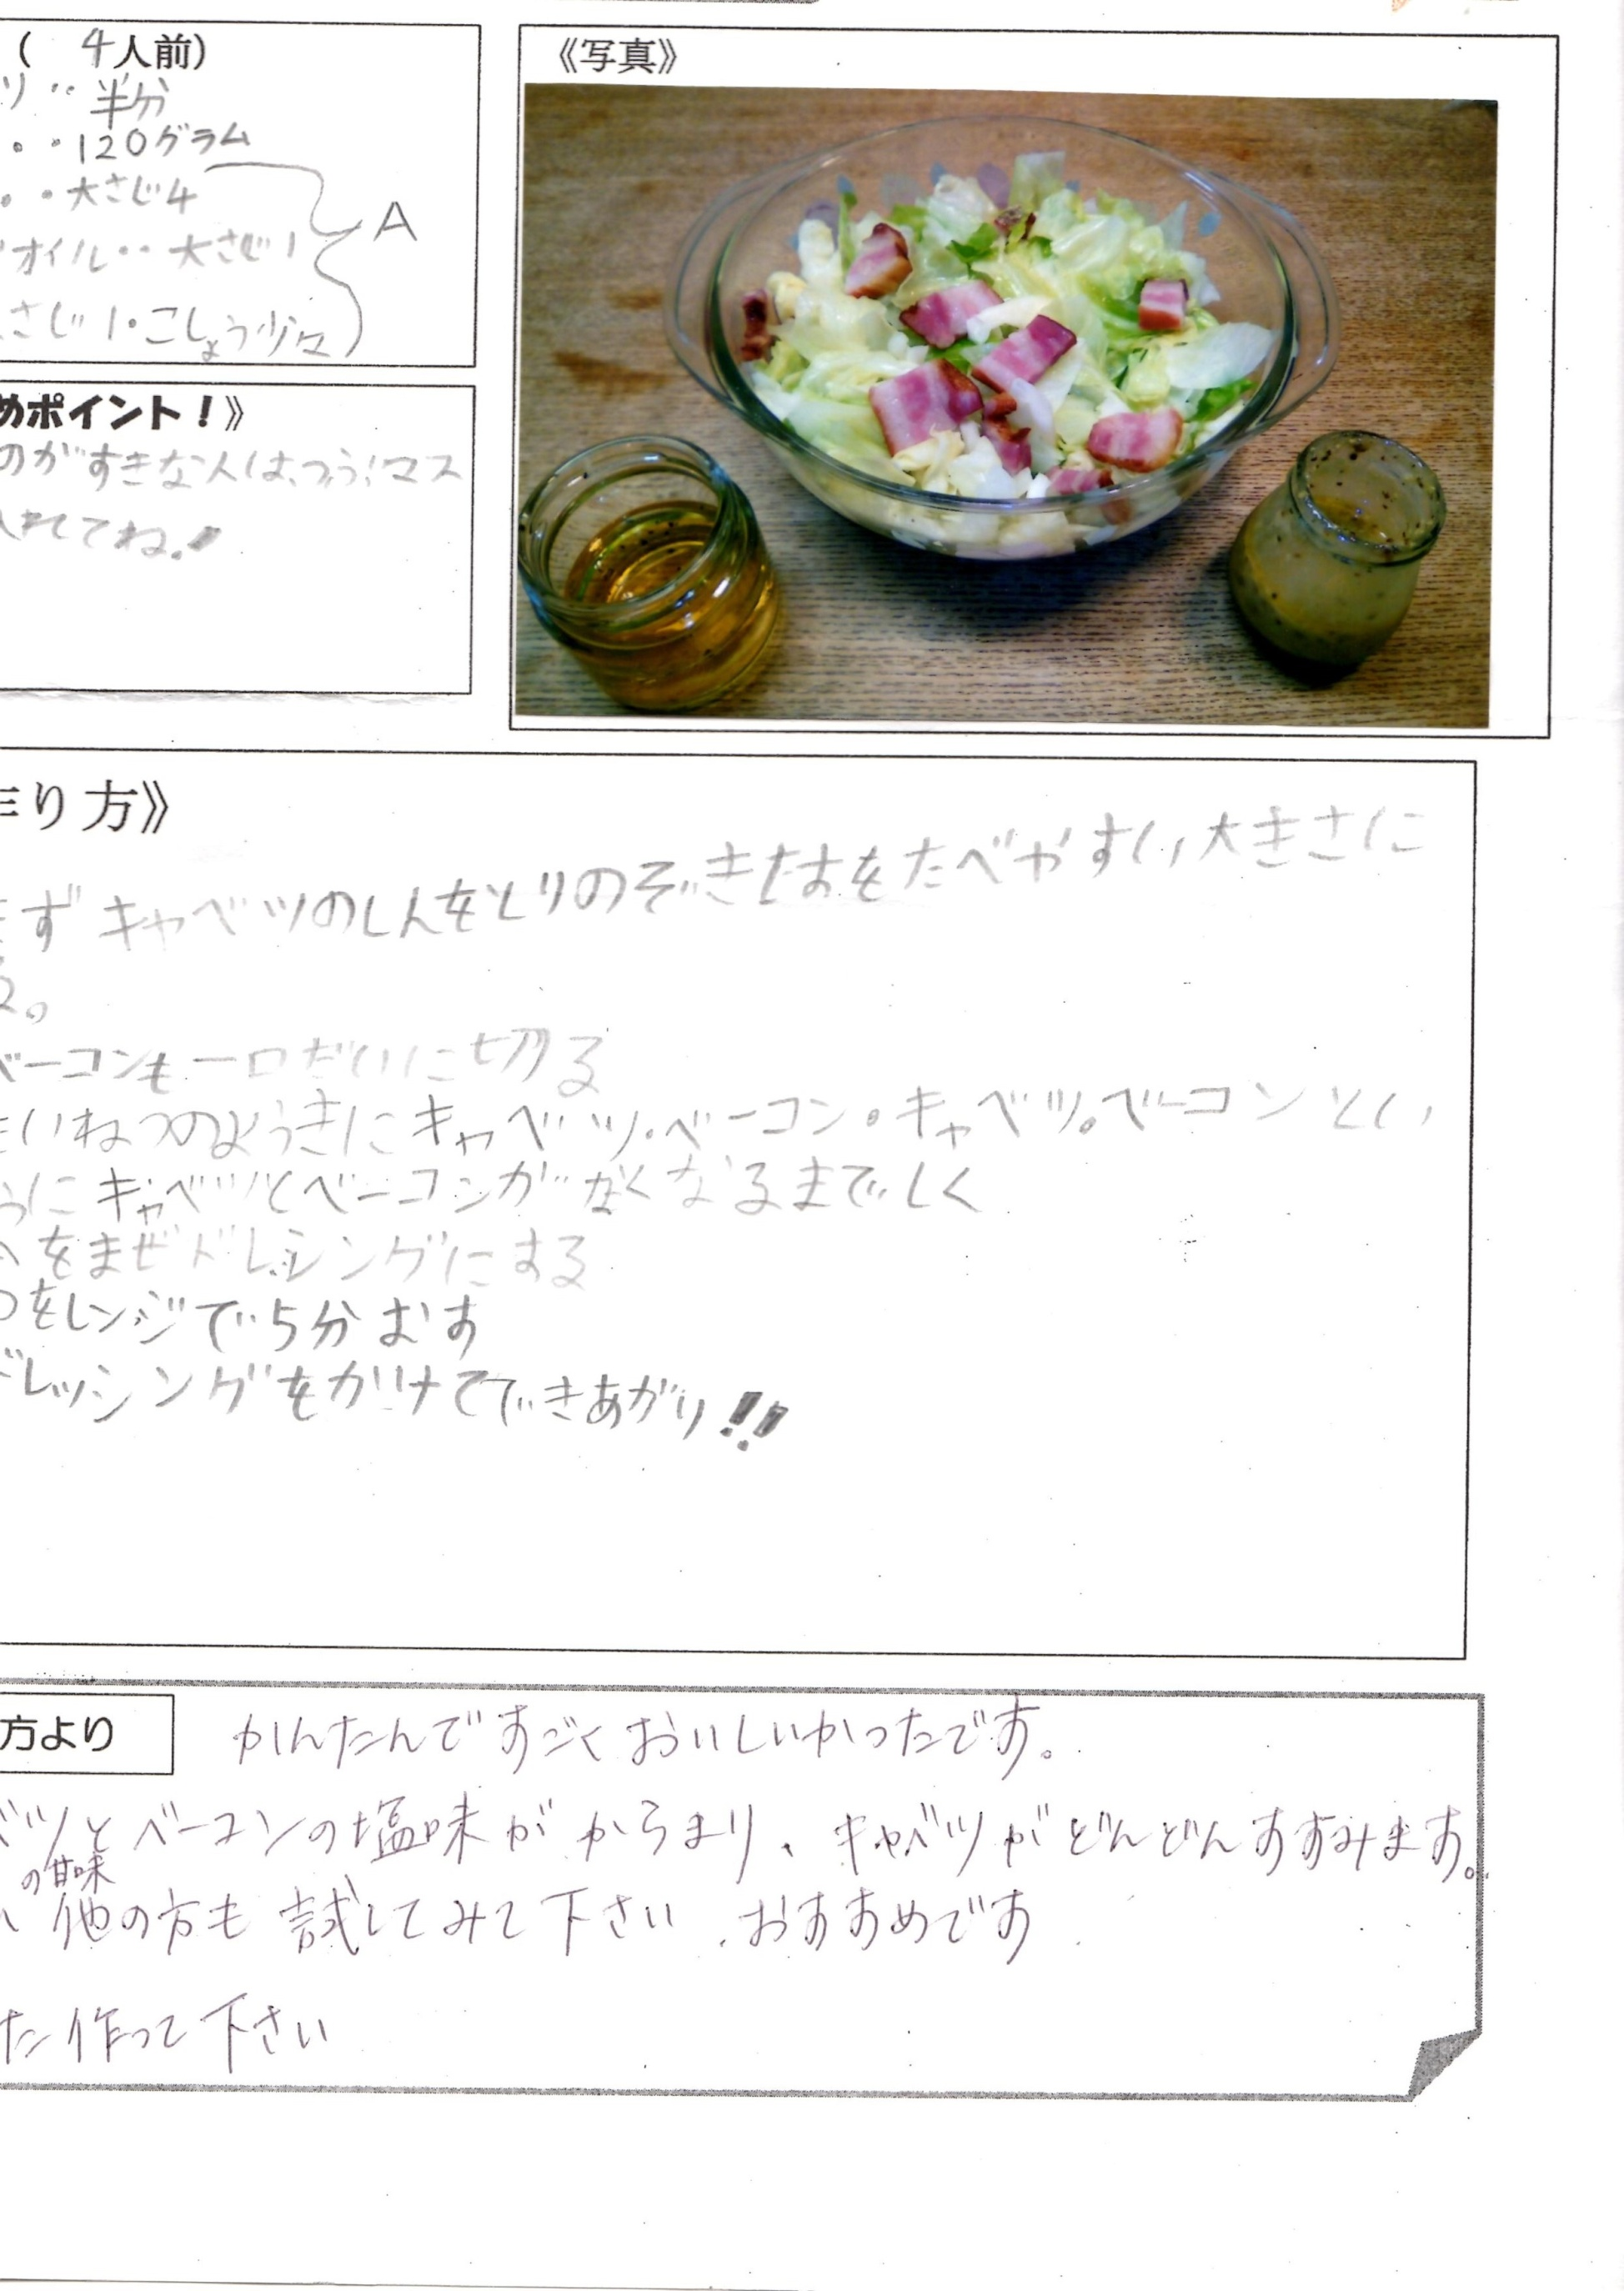 ( 4人前)
ツ‥半分
・・120グラム
・・大さじ4
オイル‥大さじ1
さじ1・こしょう少々)
A
めポイント！》
のがすきな人は、つぶマス
入れてね。!
《写真》
作り方》
まず キャベツのしんをとりのぞきはをたべやすい大きさに
る。
ベーコンも一口だいに切る
たいねつのようきにキャベツ・ベーコン・キャベツ。ベーコンとい
うにキャベツとベーコンがなくなるまでしく
Aをまぜドレシングにする
をレンジで5分むす
ドレッシングをかけてできあがり!!
方より
かんたんですごくおいしいかったです。
ベツとベーコンの塩味がからまり、キャベツがどんどんすすみます。
の甘味
他の方も 試してみて下さい、おすすめです
た作って下さい